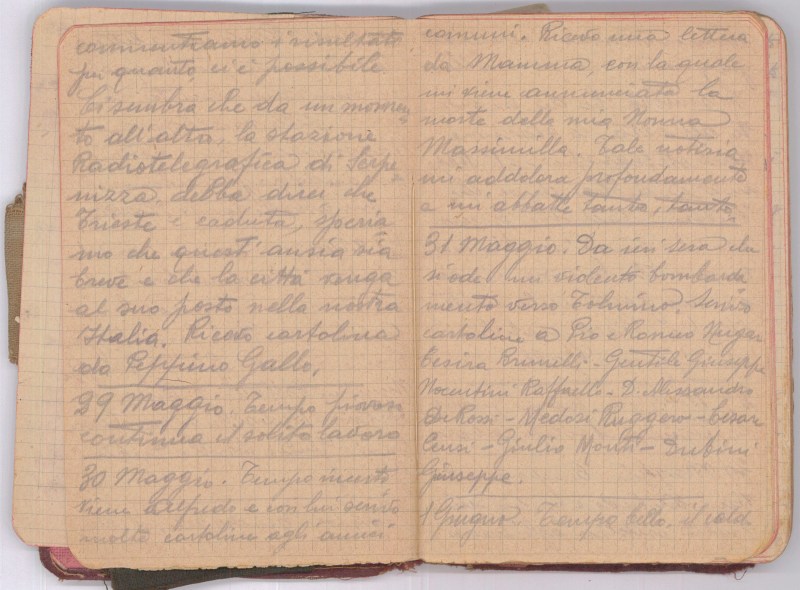 commentiamo i risultati
per quanto ci è possibile
Ci sembra che da un momen
to all'altro, la stazione
Radiotelegrafica di Serpe
nizza debba dirci che
Trieste è caduta, speria
mo che quest'ansia sia
breve e che la città venga
al suo posto nella nostra
Italia. Ricevo cartolina
da Peppino Gallo.
29 Maggio. Tempo piovoso
continua il solito lavoro
30 Maggio. Tempo incerto
viene Alfredo e con lui scrivo
molte cartoline agli amici
comuni. Ricevo una lettera
da Mamma, con la quale
mi viene annunciata la
morte della mia Nonna
Massimilla. Tale notizia
mi addolora profondamente
e mi abbatte tanto, tanto.
31 Maggio. Da ieri sera che
si ode un violento bombarda
mento verso Tolmino. Scrivo
cartoline a Pio e Romeo
Cesira Brunelli - Gentile Giuseppe
Nocentini Raffaello - D. Alessandro
De Rossi - Medosi Ruggero - Cesare
Censi - Giulio Monti - Dubini
Giuseppe.
1 Giugno. Tempo bello. il